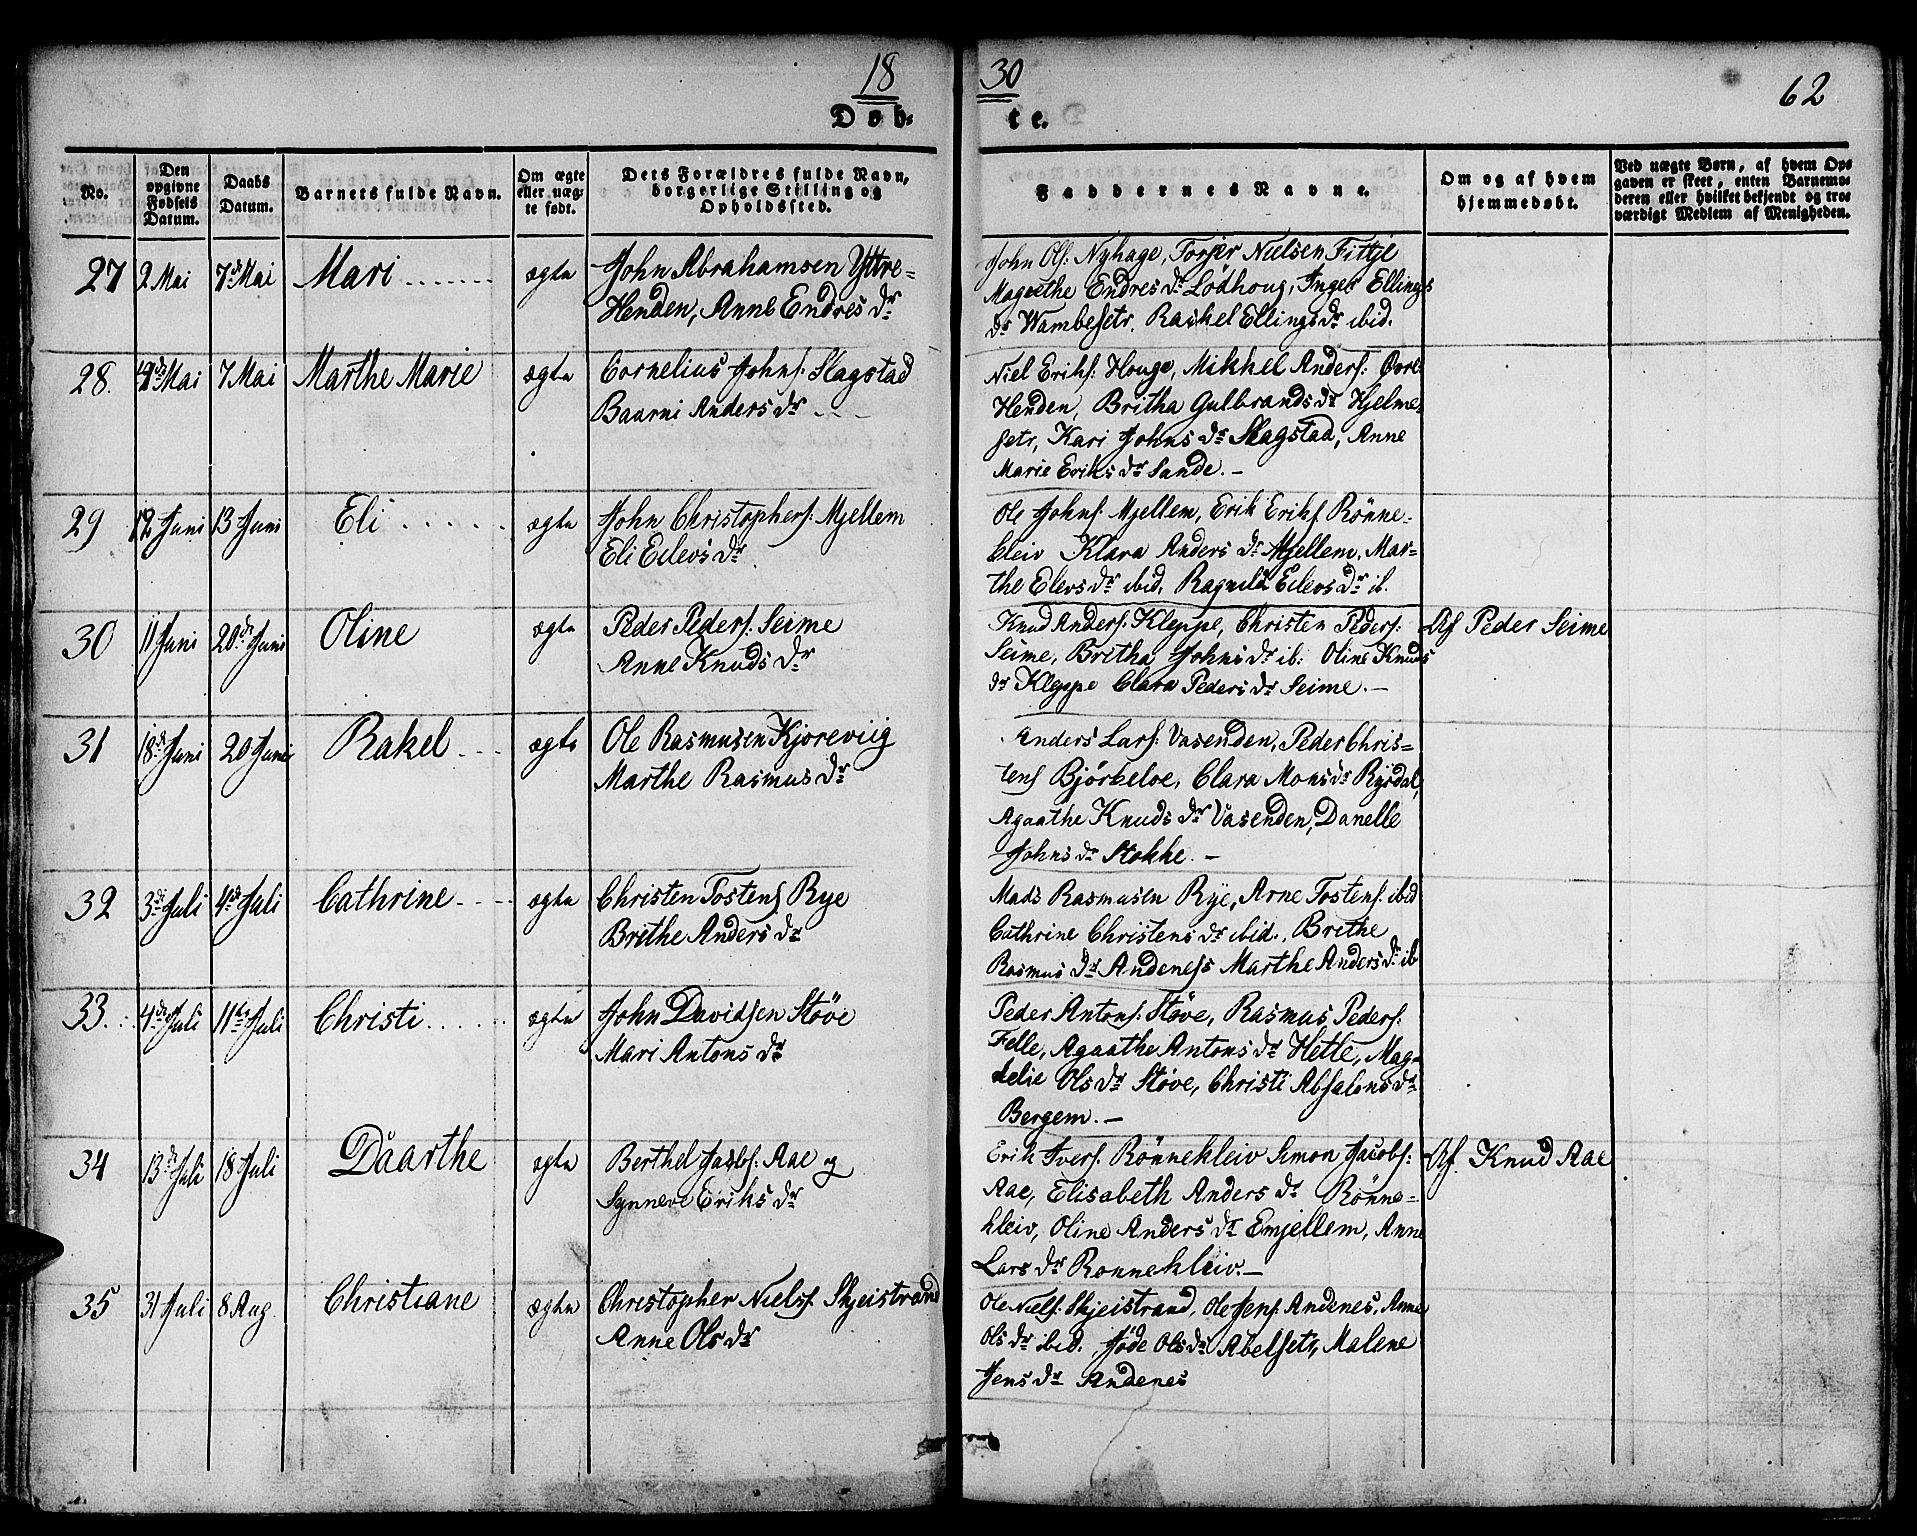 18 30
62
Døb- te.
No. Den opgivne Fødsels Datum. Daabs Datum. Barnets fulde Navn. Om ægte eller uæg- te født. Dets Forældres fulde Navn, borgerlige Stilling og Opholdssted. Faddernes Navne. Om og af hvem hjemmedøbt. Ved uægte Børn, af hvem Op- gaven er skeet, enten Barnemo- deren eller hvilket bekjendt og tro- værdigt Medlem af Menigheden.
27 2 Mai 7de Mai Mari ægte John Abrahamsen Yttre-
Henden, Anne Endres dr
John Ols: Nyhage, Torjer Nielsen Fittje
Magrethe Endres dr Lødhoug, Inger Ellings
dr Wambesetr, Rachel Ellings dr ibid.
28. Mai 7 Mai Marthe Marie ægte Cornelius Johns: Slagstad
Baarni Anders dr
Niel Eriks: Houge, Mikkel Anders: Øvre
Henden, Britha Gulbrands dr Hjelme-
setr, Kari Johns dr Slagstad, Anne
Marie Eriks dr Sande. –
29 12 Juni 13 Juni Eli ægte John Christophers: Mjellem
Eli Eilevs dr
Ole Johns: Mjellem, Erik Eriks Rönne-
kleiv Klara Anders dr Mjellem, Mar-
the Elevs dr ibid, Ragnild Eilevs dr ib.
30 11 Juni 20de Juni Oline ægte Peder Peders: Seime
Anne Knuds dr
Knud Anders: Kleppe, Christen Peders:
Seime, Britha Johns dr ib: Oline Knuds
dr Kleppe Clara Peders dr Seime. –
Af Peder Seime
31 18de Juni 20 Juni Rakel ægte Ole Rasmusen Kjøreviig
Marthe Rasmus dr
Anders Lars: Vasenden, Peder Chris-
tens Björkeloe, Clara Mons dr Ryssdal,
Agaathe Knuds dr Vasenden, Danelle
Johns dr Stokke. –
32 3de Juli 4de Juli Cathrine ægte Christen Tostens Rye
Brithe Anders dr
Mads Rasmusen Rye, Arne Tostens: ibid
Cathrine Christens dr ibid., Brithe
Rasmus dr Andeness Marthe Anders dr ib
33. 4de Juli 11te Juli Christi ægte John Davidsen Støve
Mari Antons dr
Peder Antons: Støve, Rasmus Peders:
Felle, Agaathe Antons dr Hette, Mag-
delie Ols dr Støve, Christi Absalons dr
Bergem. –
34 13de Juli 18 Juli Daarthe ægte Berthel Jacobs: Aae og
Synneve Eriks dr
Erik Ivers: Rönnekleiv Simon Jacobs:
Aae, Elisabeth Anders dr Rönne-
kleiv, Oline Anders dr Emjellem, Anne
Lars dr Ronnekleiv. –
Af Knud Aae
35 31 Juli 8 Aug Christiane ægte Christopher Niels: Skjeistrand
Anne Ols dr
Ole Niels: Skjeistrand, Ole Jens: Andenes, Anne
Ols dr ibid. Jøde Ols dr Abelsetr, Malene
Jens dr Andenes